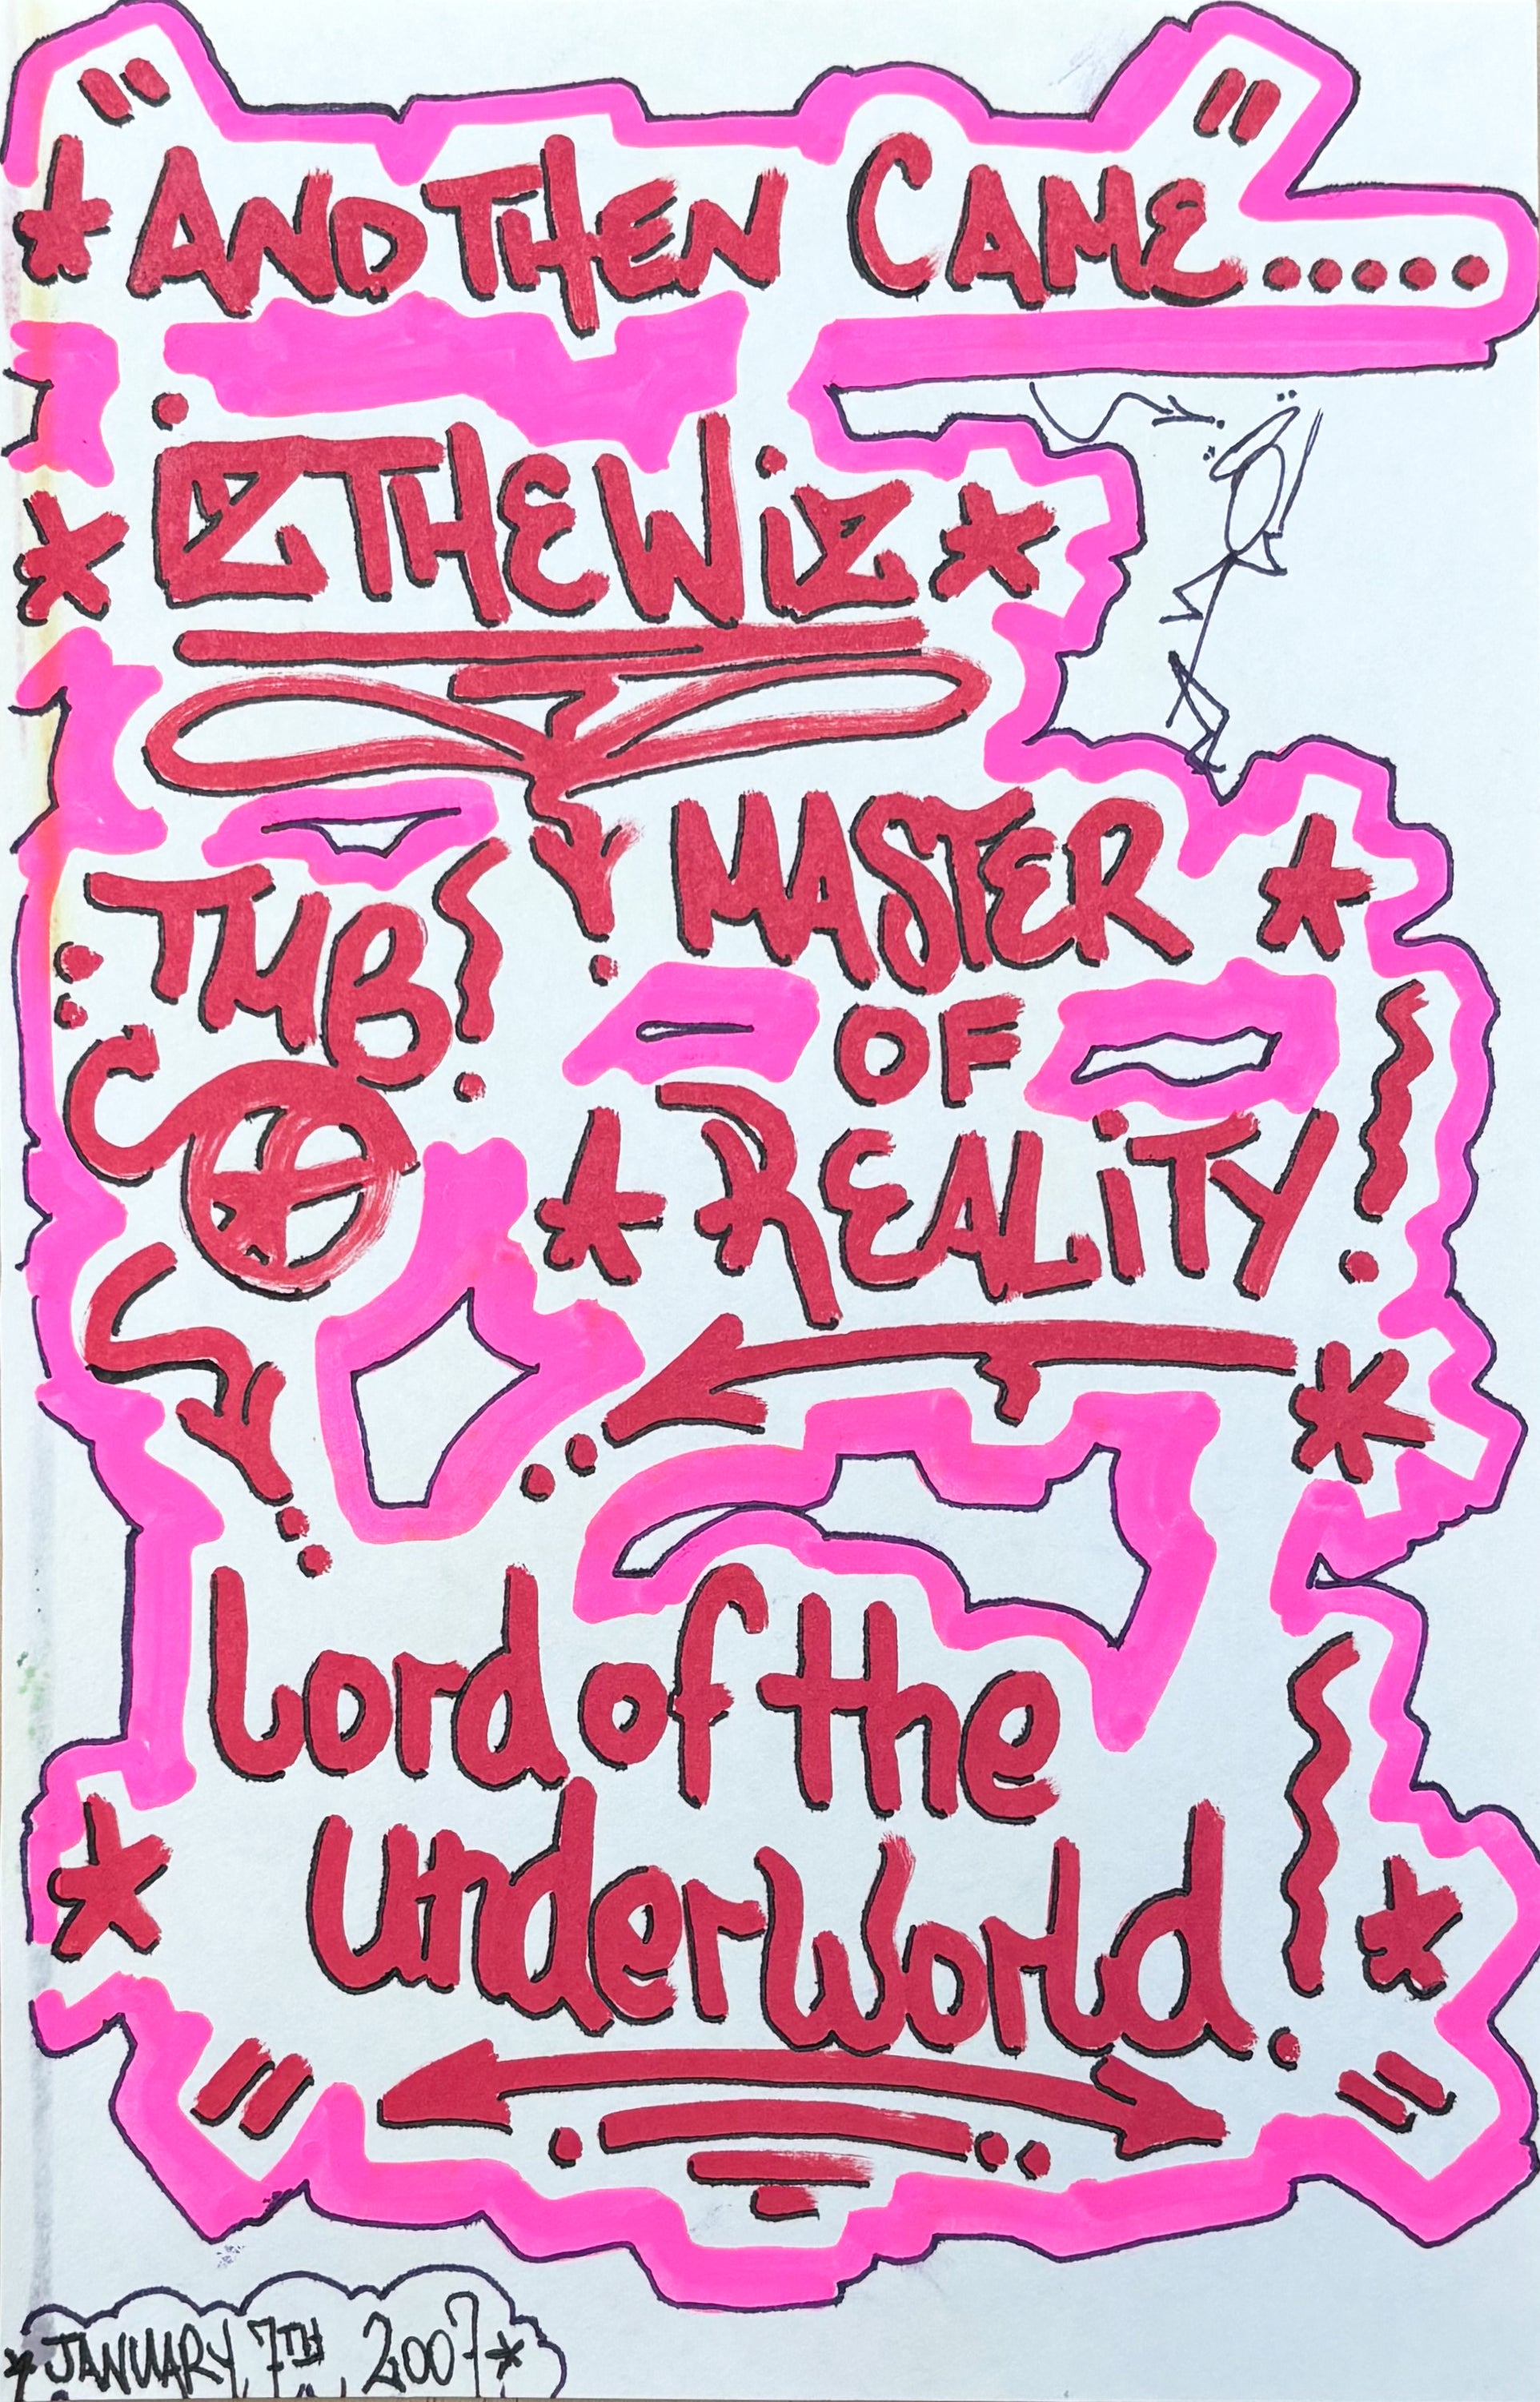 " AND THEN CAME ..... "
IZ THE WIZ
TMB
MASTER
OF
REALITY
Lord of the
underworld.
" "
JANUARY 7TH, 2007